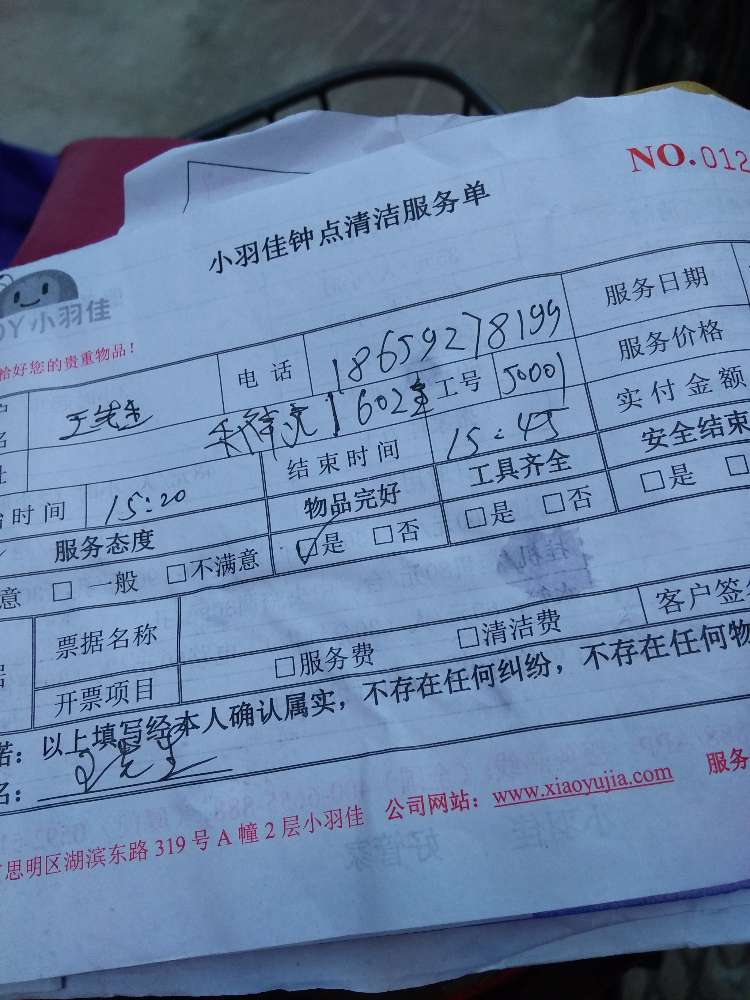 NO.012
小羽佳钟点清洁服务单
小羽佳
您的贵重物品!
电话 18659278199 服务日期
王先生 602室 工号 50001 服务价格
时间 15:20 结束时间 15:45 实付金额
服务态度 物品完好 工具齐全 安全结束
意 □一般 □不满意 □是 □否 □是 □否 □是
票据名称
开票项目 □服务费 □清洁费 客户签
以上填写经本人确认属实,不存在任何纠纷,不存在任何物
名: 王先生
思明区湖滨东路319号A幢2层小羽佳 公司网站:www.xiaoyujia.com 服务